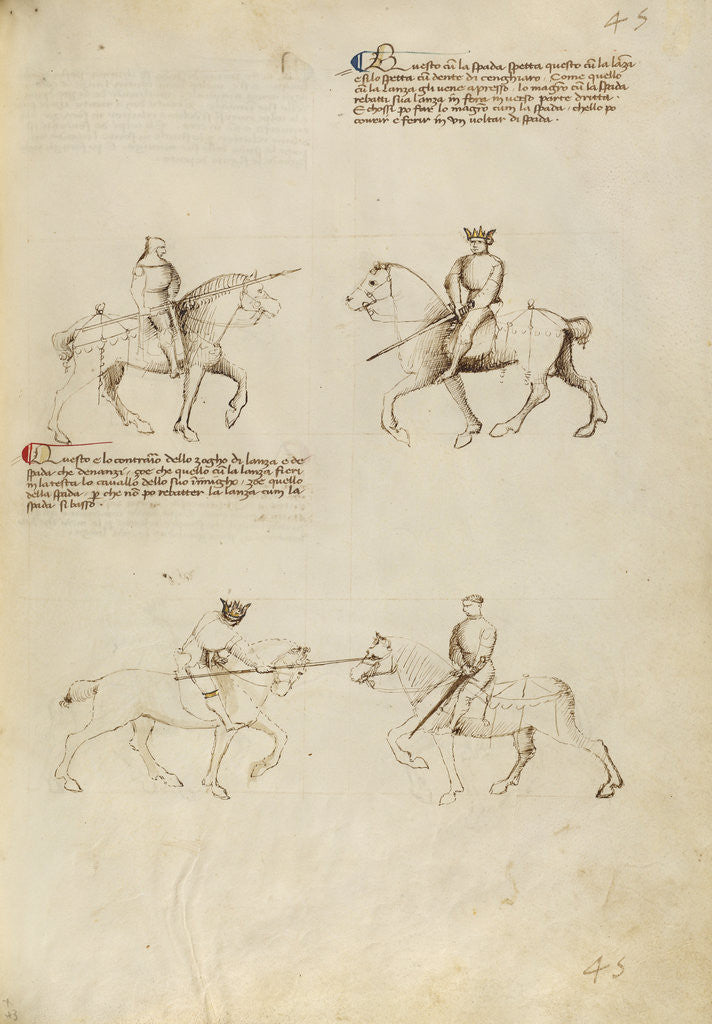 45
Questo cu͂ la spada spetta questo cu͂ la la͂za
e si lo spetta cu͂ dente di cenghiaro, Come quello
cu͂ la lanza gli vene apresso, lo magro cu͂ la spada
rebatti sua lanza in fora in verso parte dritta.
E chossi po fare lo magro cum la spada, chello po
covrir e ferir in un voltar di spada.
Questo e lo contrario dello zogho di lanza e de
spada che denanzi, zoe che quello cu͂ la lanza fieri
in la testa lo cavallo dello suo inimigho, zoe quello
della spada, p̱ che no͂ po rebatter la lanza cum la
spada si basso.
45
43